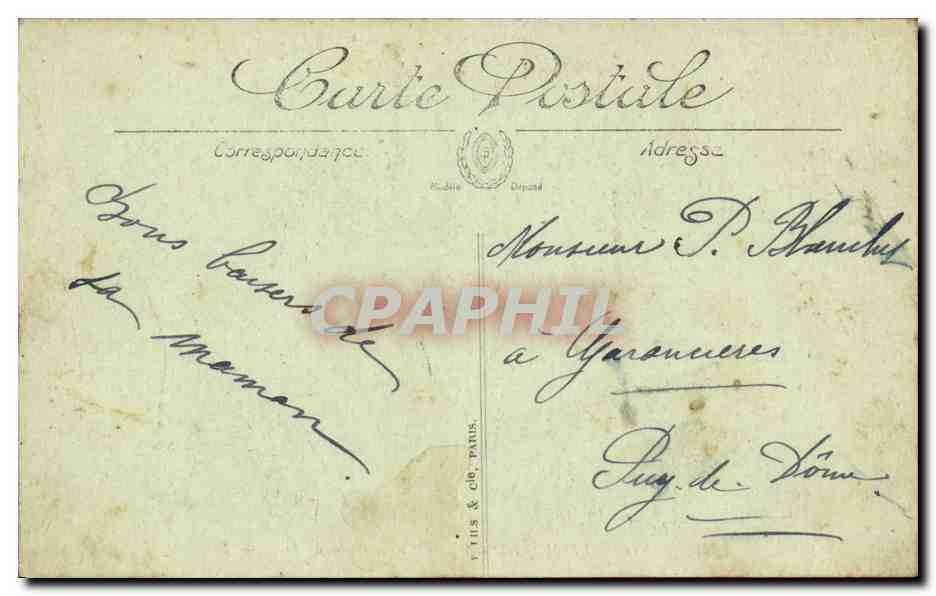 Carte Postale
Correspondance
Adresse
Modèle Déposé
Bons baisers de
ta maman.
Monsieur P. Blanchet
à Yaronnieres
Puy-de-Dôme.
FILS & Cie, PARIS.
CPAPHIL